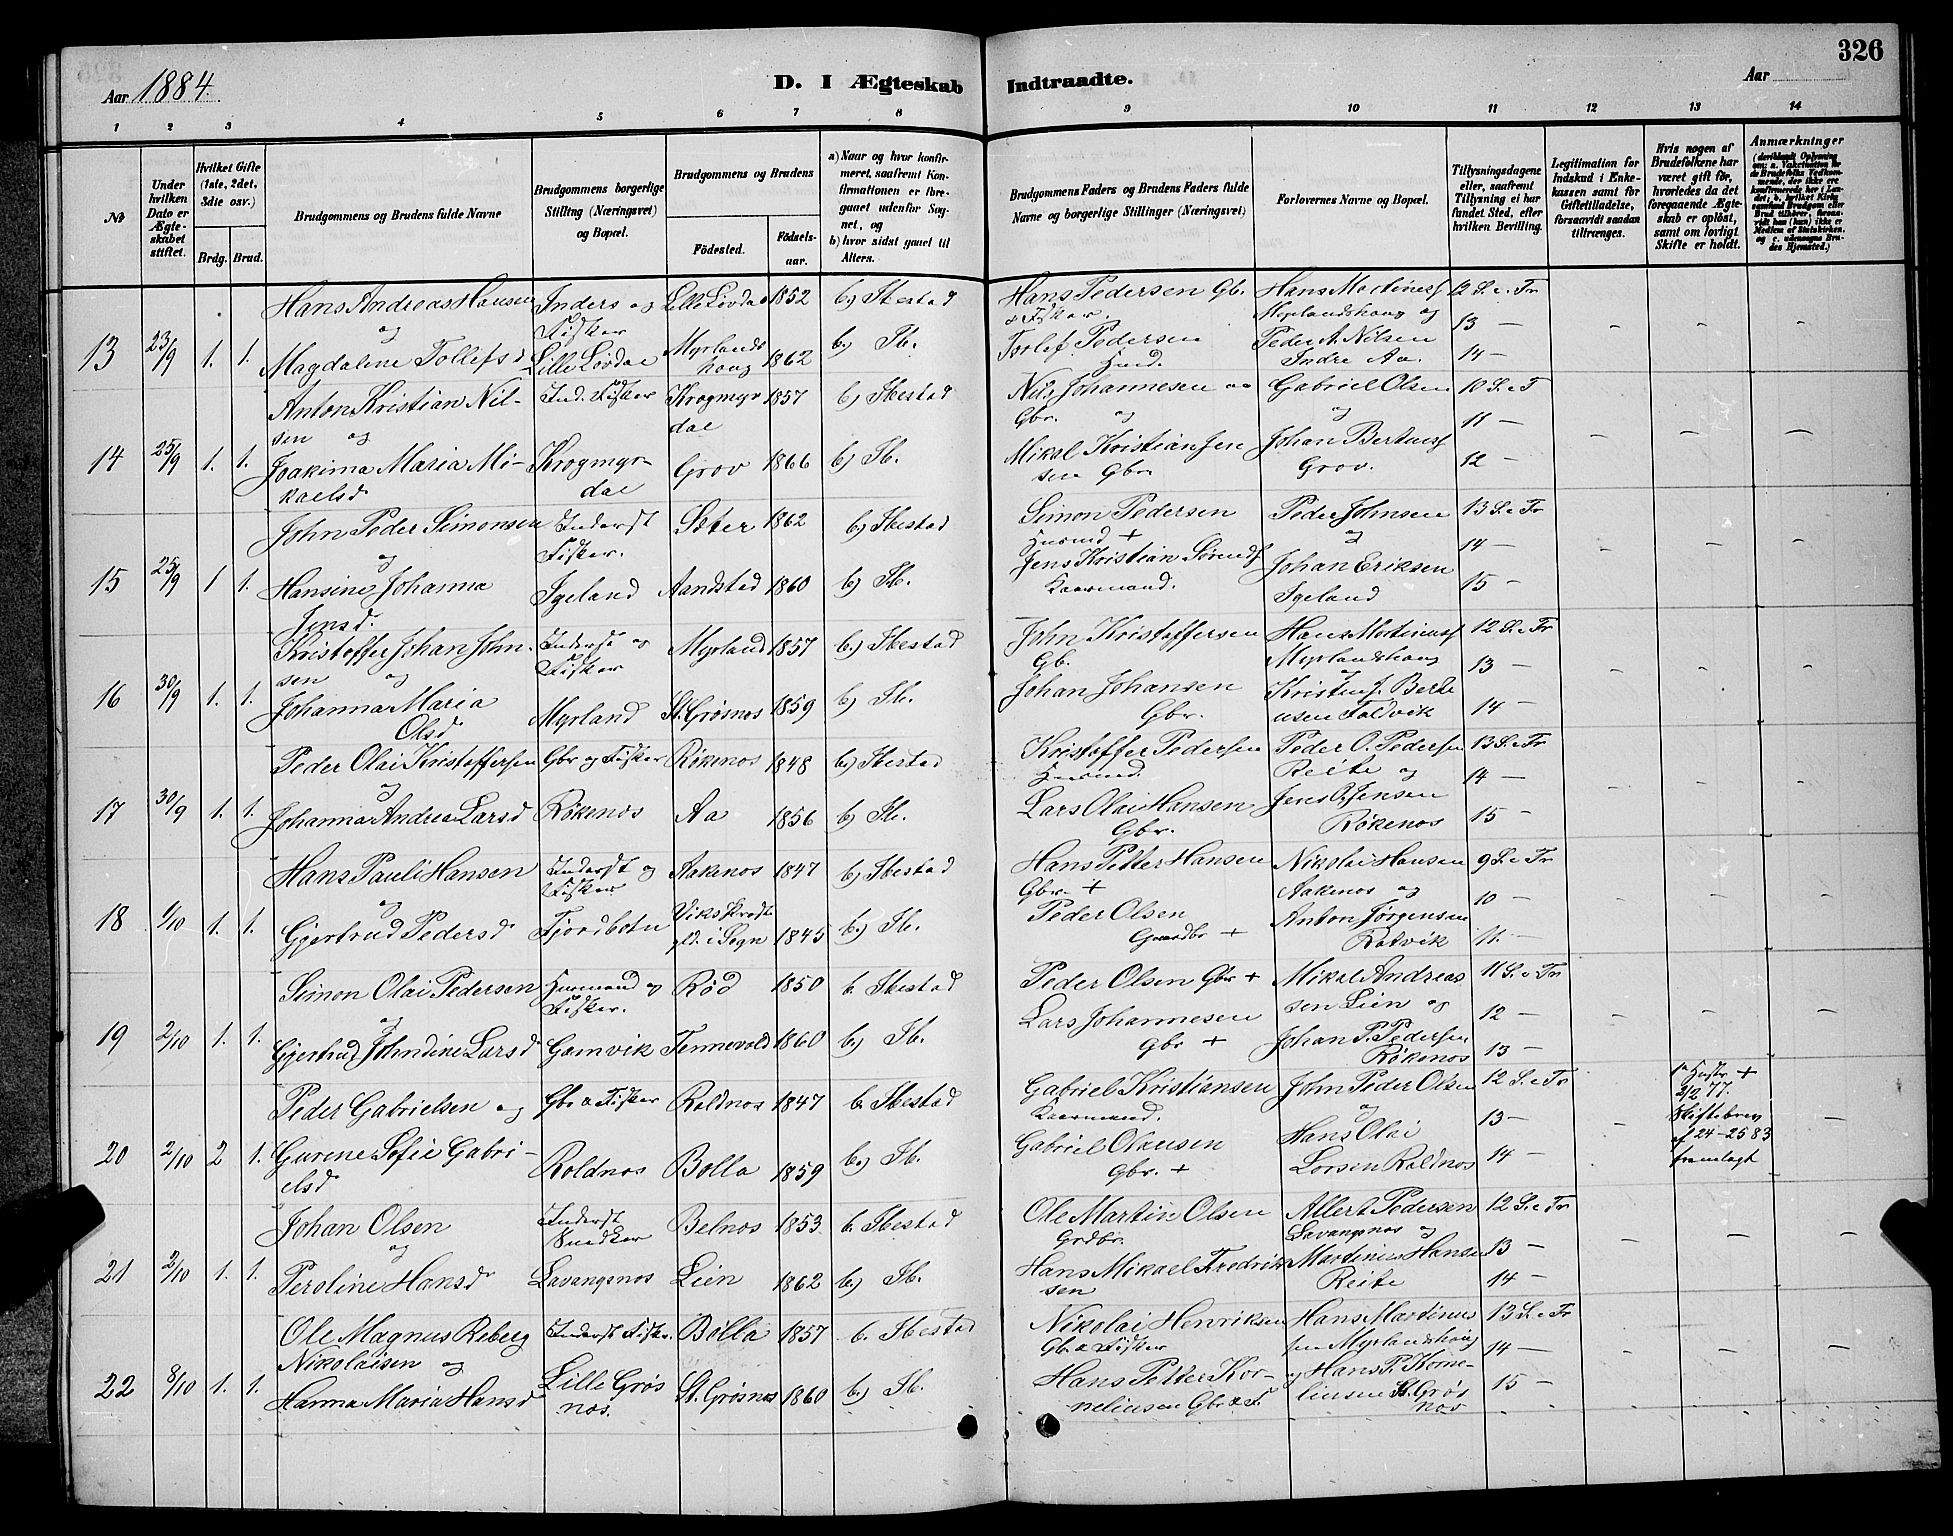 326
Aar 1884.
D. I Ægteskab Indtraadte.
Aar
1 2 3 4 5 6 7 8 9 10 11 12 13 14
No
Under hvilken Dato er Ægteskabet stiftet.
Hvilket Gifte (1ste, 2det, 3die osv.)
Brdg. Brud.
Brudgommens og Brudens fulde Navne
Brudgommens borgerlige Stilling (Næringsvei) og Bopæl.
Brudgommens og Brudens
Födested. Födsels-aar.
a) Naar og hvor konfirmeret, saafremt Konfirmationen er foregaaet udenfor Sognet, og
b) hvor sidst gaaet til Alters.
Brudgommens Faders og Brudens Faders fulde Navne og borgerlige Stillinger (Næringsvei)
Forlovernes Navne og Bopæl.
Tillysningsdagene eller, saafremt Tillysning ei har fundet Sted, efter hvilken Bevilling.
Legitimation for Indskud i Enkekassen samt for Giftetilladelse, forsaavidt saadan tiltrænges.
Hvis nogen af Brudefolkene har været gift før, hvorledes da det foregaaende Ægteskab er oplöst, samt om lovligt Skifte er holdt.
Anmærkninger
13 23/9 1. 1. Hans Andreas Hansen og Magdalene Tollefsd
Inders og Fisker Lille Lövdal
Lille Lövdal 1852 b) Ibestad
Myrlandshaug 1862 b) Ib.
Hans Pedersen Gb. & Fisker.
Torlef Pedersen Husd.
Hans Martinusf Myrlandshaug og Peder A. Nilsen Indre Aa.
12 S. e. Tr 13 — 14 —
14 25/9 1. 1. Anton Kristian Nilsen og Joakima Maria Mikaelsd
Ind. Fisker Krogmyrdal
Krogmyrdal 1857 b) Ibestad
Grov 1866 b) Ib.
Nils Johannesen Gbr. og
Mikal Kristian Jensen Gbr.
Gabriel Olsen og Johan Bertheusf Grov.
10 S. e T 11 — 12 —
15 25/9 1 1. John Peder Simonsen og Hansine Johanna Jensd.
Inderst Fisker. Igeland
Seter 1862 b) Ibestad
Aandstad 1860 b) Ib.
Simon Pedersen Husmd +
Jens Kristian Sörensf Kaarmand.
Peder Johnsen og Johan Eriksen Igeland
13 S. e Tr 14 — 15 —
16 30/9 1. 1. Kristoffer Johan Johnsen og Johanna Maria Olsd
Inderst og Fisker Myrland
Myrland 1857 b.) Ibestad
St. Grösnes 1859 b) Ib.
John Kristoffersen Gb.
Johan Johansen Gbr.
Hans Martinusf Myrlandshaug og Kristen J. Berteusen Foldvik
12 S. e Tr 13 — 14 —
17 30/9 1. 1. Peder Olai Kristoffersen og Johanna Andrea Larsd
Gbr og Fisker Rökenes
Rökenes 1848 b.) Ibestad
Aa 1856 b) Ib.
Kristoffer Pedersen Husmd.
Lars Olai Hansen Gbr.
Peder O. Pedersen Reite og Jens O. Jensen Rökenes
13 S. e Tr 14 — 15 —
18 1/10 1. 1. Hans Pauli Hansen og Gjertrud Pedersd
Inderst og Fisker Fjordbotn
Aakenes 1847 b) Ibestad
Viks Prgd i Sogn 1845 b.) Ib.
Hans Petter Hansen Gbr. +
Peder Olsen Gaardbr +
Nikolai Hansen Aakenes og Anton Jörgensen Rotvik
9 S. e Tr 10 — 11. —
19 2/10 1. 1. Simon Olai Pedersen og Gjertrud Johndine Larsd
Husmand og Fisker. Gamvik
Röd 1850 b. Ibestad
Tennevold 1860 b.) Ib.
Peder Olsen Gbr +
Lars Johannesen Gbr +
Mikal Andreassen Lien og Johan P. Pedersen Rökenes
11 S. e Tr 12 — 13 —
20 2/10 2 1. Peder Gabrielsen og Gurene Sofie Gabrielsd
Gbr & Fisker Roldnes
Roldnes 1847 b. Ibestad
Bolla 1859 b.) Ib.
Gabriel Kristiansen Kaarmand.
Gabriel Olausen Gbr. +
John Peder Olsen og Hans Olai Lorsen Roldnes
12 S. e Tr 13 — 14 —
1ste Hustr + 2/2 77. Skiftebrev af 24-2583 fremlagt
21 2/10 1. 1. Johan Olsen og Peroline Hansd
Inderst Snedker Lavangsnes
Belnes 1853 b. Ibestad
Lien 1862 b) Ib.
Ole Martin Olsen Grdbr.
Hans Mikael Fredriksen
Allert Pedersen Lavangsnes og Martinus Hansen Reite
12 S. e Tr 13 — 14 —
22 8/10 1. 1. Ole Magnus Reberg Nikolaisen og Hanna Maria Hansd
Inderst Fisker. Lille Grösnes.
Bolla 1857 b. Ibestad
St. Grösnes 1860 b.) Ib.
Nikolai Henriksen Gb & Fisker
Hans Petter Kornelinsen Gbr & F.
Hans Martinussen Myrlandshaug og Hans P. Kornelinsen St. Grösnes
13 S. e Tr 14 — 15 —